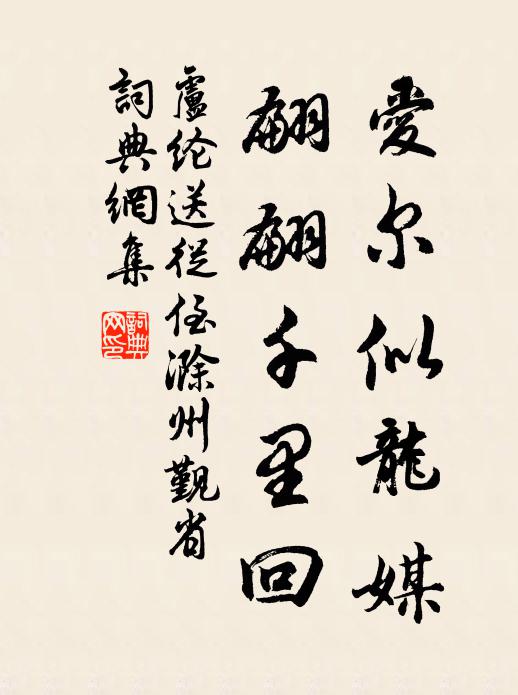 愛尔似龍媒
翩翩千里回
盧纶送從侄滁州觐省
詞典網集
詞典網印